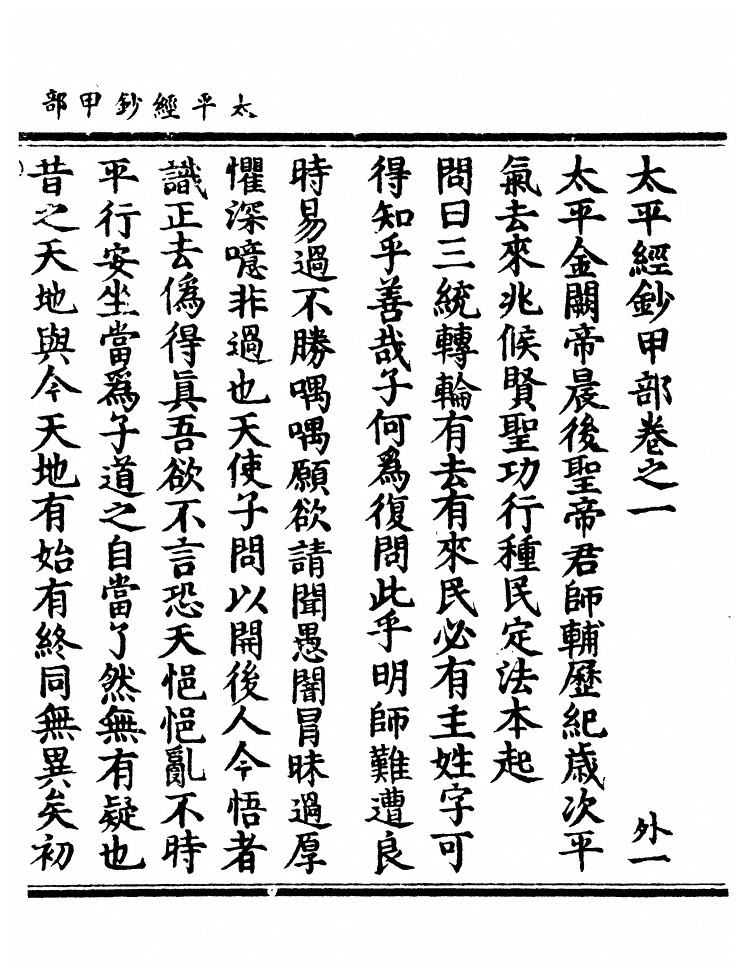 太平經鈔甲部
太平經鈔甲部卷之一
外一
太平金闕帝晨後聖帝君師輔歷紀歲次平
氣去來兆候賢聖功行種民定法本起
問曰三統轉輪有去有來民必有主姓字可
得知乎善哉子何爲復問此乎明師難遭良
時易過不勝喁喁願欲請聞愚闇冒昧過厚
懼深噫非過也天使子問以開後人今悟者
識正去僞得眞吾欲不言恐天悒悒亂不時
平行安坐當爲子道之自當了然無有疑也
昔之天地與今天地有始有終同無異矣初